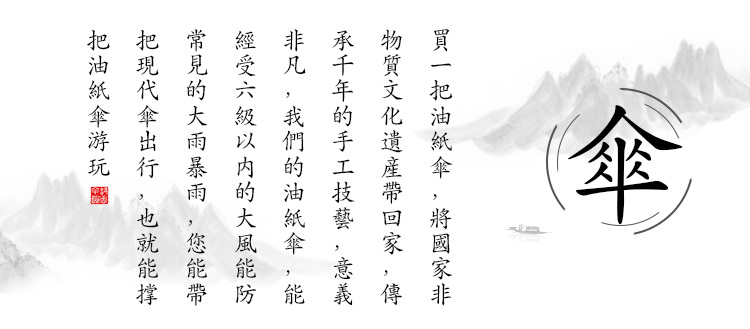 傘
買一把油紙傘，將國家非
物質文化遺産帶回家，傳
承千年的手工技藝，意義
非凡，我們的油紙傘，能
經受六級以内的大風能防
常見的大雨暴雨，您能帶
把現代傘出行，也就能撑
把油紙傘游玩